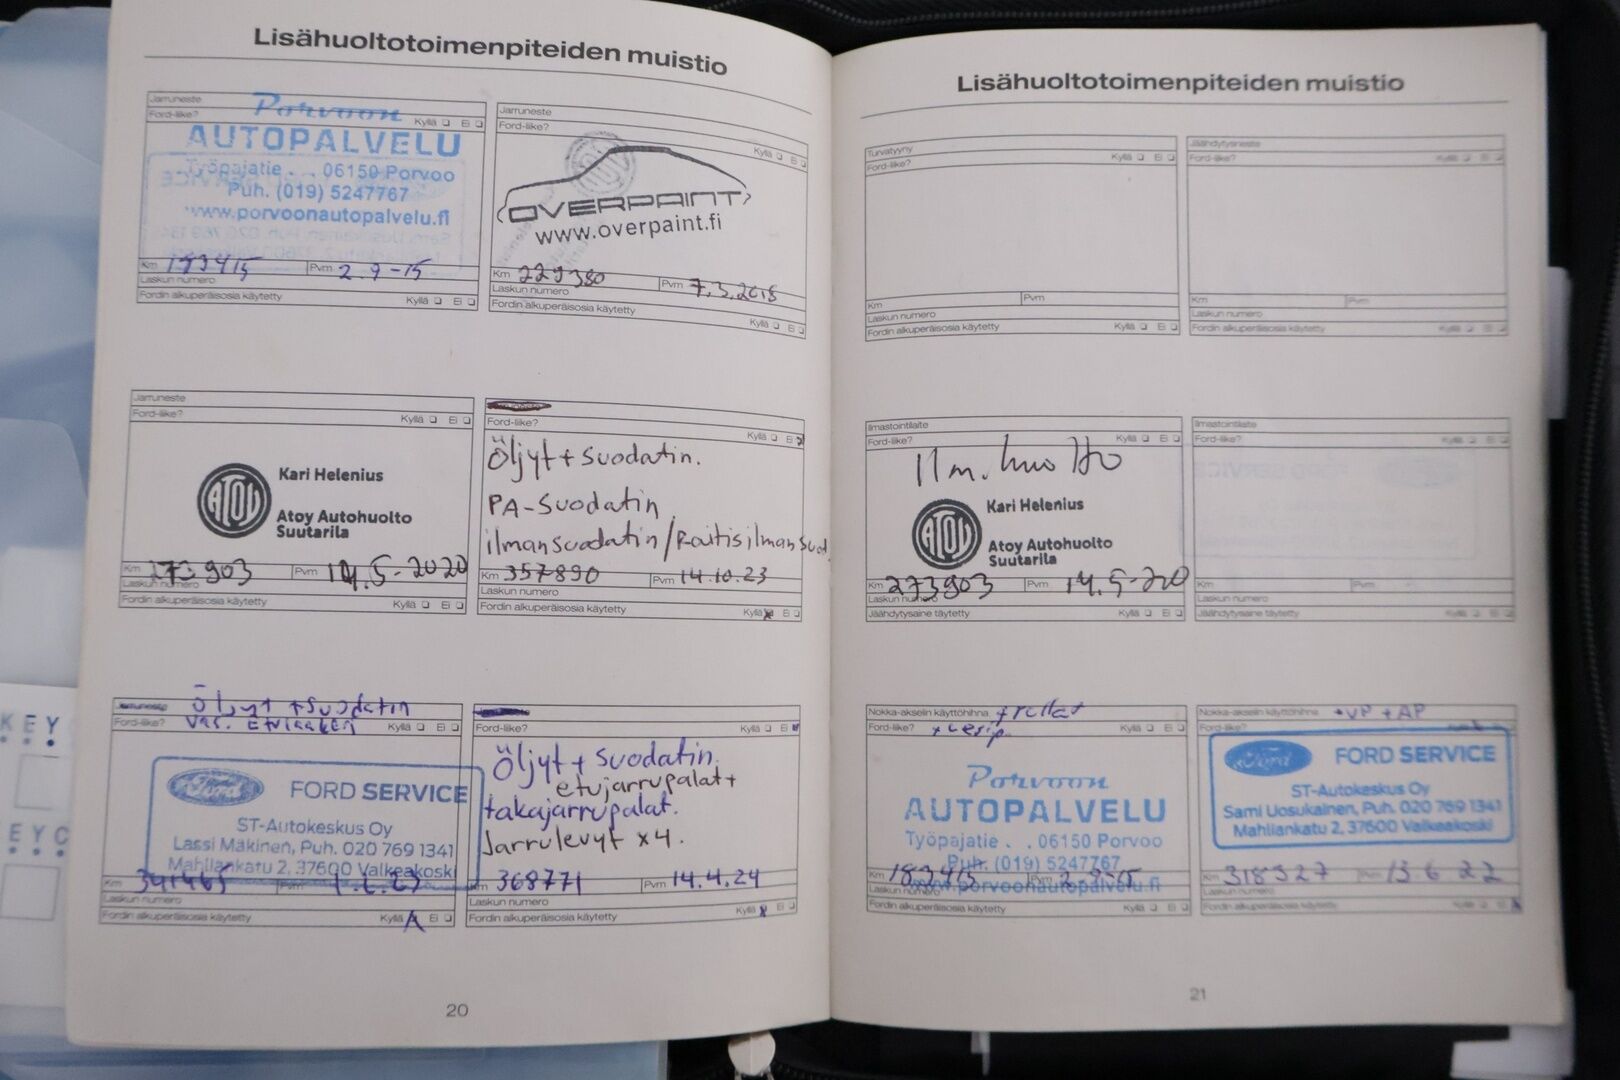 Lisähuoltotoimenpiteiden muistio
Jarruneste
Ford-liike? Kyllä ❏ Ei ❏
Porvoon
AUTOPALVELU
Työpajatie . . 06150 Porvoo
Puh. (019) 5247767
www.porvoonautopalvelu.fi
Km Pvm 2.9-15
Laskun numero
Fordin alkuperäisosia käytetty Kyllä ❏ Ei ❏
Jarruneste
Ford-liike?
Kyllä ❏ Ei ❏
OVERPAINT
www.overpaint.fi
Km 229380 Pvm 7.3.2018
Laskun numero
Fordin alkuperäisosia käytetty
Kyllä ❏ Ei ❏
Jarruneste
Ford-liike? Kyllä ❏ Ei ❏
ATOY
Kari Helenius
Atoy Autohuolto
Suutarila
Km 273903 Pvm 14.5-2020
Laskun numero
Fordin alkuperäisosia käytetty Kyllä ❏ Ei ❏
Ford-liike? Kyllä ❏ Ei
Öljyt + suodatin.
PA-Suodatin
ilmansuodatin/Raitisilmansuod
Km 357890 Pvm 14.10.23
Laskun numero
Fordin alkuperäisosia käytetty Kyllä Ei ❏
Jarruneste Öljyt + suodatin
Ford-liike? Kyllä ❏ Ei ❏
Ford FORD SERVICE
ST-Autokeskus Oy
Lassi Mäkinen, Puh. 020 769 1341
Mahliankatu 2, 37600 Valkeakoski
Km Pvm
Laskun numero
Fordin alkuperäisosia käytetty Kyllä Ei ❏
Ford-liike? Kyllä ❏ Ei
Öljyt + suodatin.
etujarrupalat+
takajarrupalat.
Jarrulevyt x4.
Km 368771 Pvm 14.4.24
Laskun numero
Fordin alkuperäisosia käytetty Kyllä Ei ❏
20
Lisähuoltotoimenpiteiden muistio
Turvatyyny
Ford-liike? Kyllä ❏ Ei ❏
Km Pvm
Laskun numero
Fordin alkuperäisosia käytetty Kyllä ❏ Ei ❏
Jäähdytysneste
Ford-liike? Kyllä ❏ Ei ❏
Km Pvm
Laskun numero
Fordin alkuperäisosia käytetty Kyllä ❏ Ei ❏
Ilmastointilaite
Ford-liike? Kyllä ❏ Ei ❏
Ilm. huolto
ATOY
Kari Helenius
Atoy Autohuolto
Suutarila
Km 273903 Pvm 14.5-20
Laskun numero
Jäähdytysaine täytetty Kyllä ❏ Ei ❏
Ilmastointilaite
Ford-liike? Kyllä ❏ Ei ❏
Km Pvm
Laskun numero
Jäähdytysaine täytetty Kyllä ❏ Ei ❏
Nokka-akselin käyttöhihna + rullat
Ford-liike? Kyllä ❏ Ei ❏
Porvoon
AUTOPALVELU
Työpajatie . . 06150 Porvoo
Puh. (019) 5247767
www.porvoonautopalvelu.fi
Km 183415 Pvm 2.9-15
Laskun numero
Fordin alkuperäisosia käytetty Kyllä ❏ Ei ❏
Nokka-akselin käyttöhihna +VP +AP
Ford-liike?
Ford FORD SERVICE
ST-Autokeskus Oy
Sami Uosukainen, Puh. 020 769 1341
Mahliankatu 2, 37600 Valkeakoski
Km 318327 Pvm 13.6.22
Laskun numero
Fordin alkuperäisosia käytetty Kyllä ❏ Ei
21
KEY